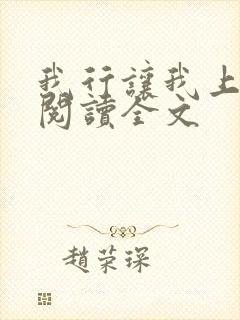 我行讓我上
閱讀全文
趙荣琛